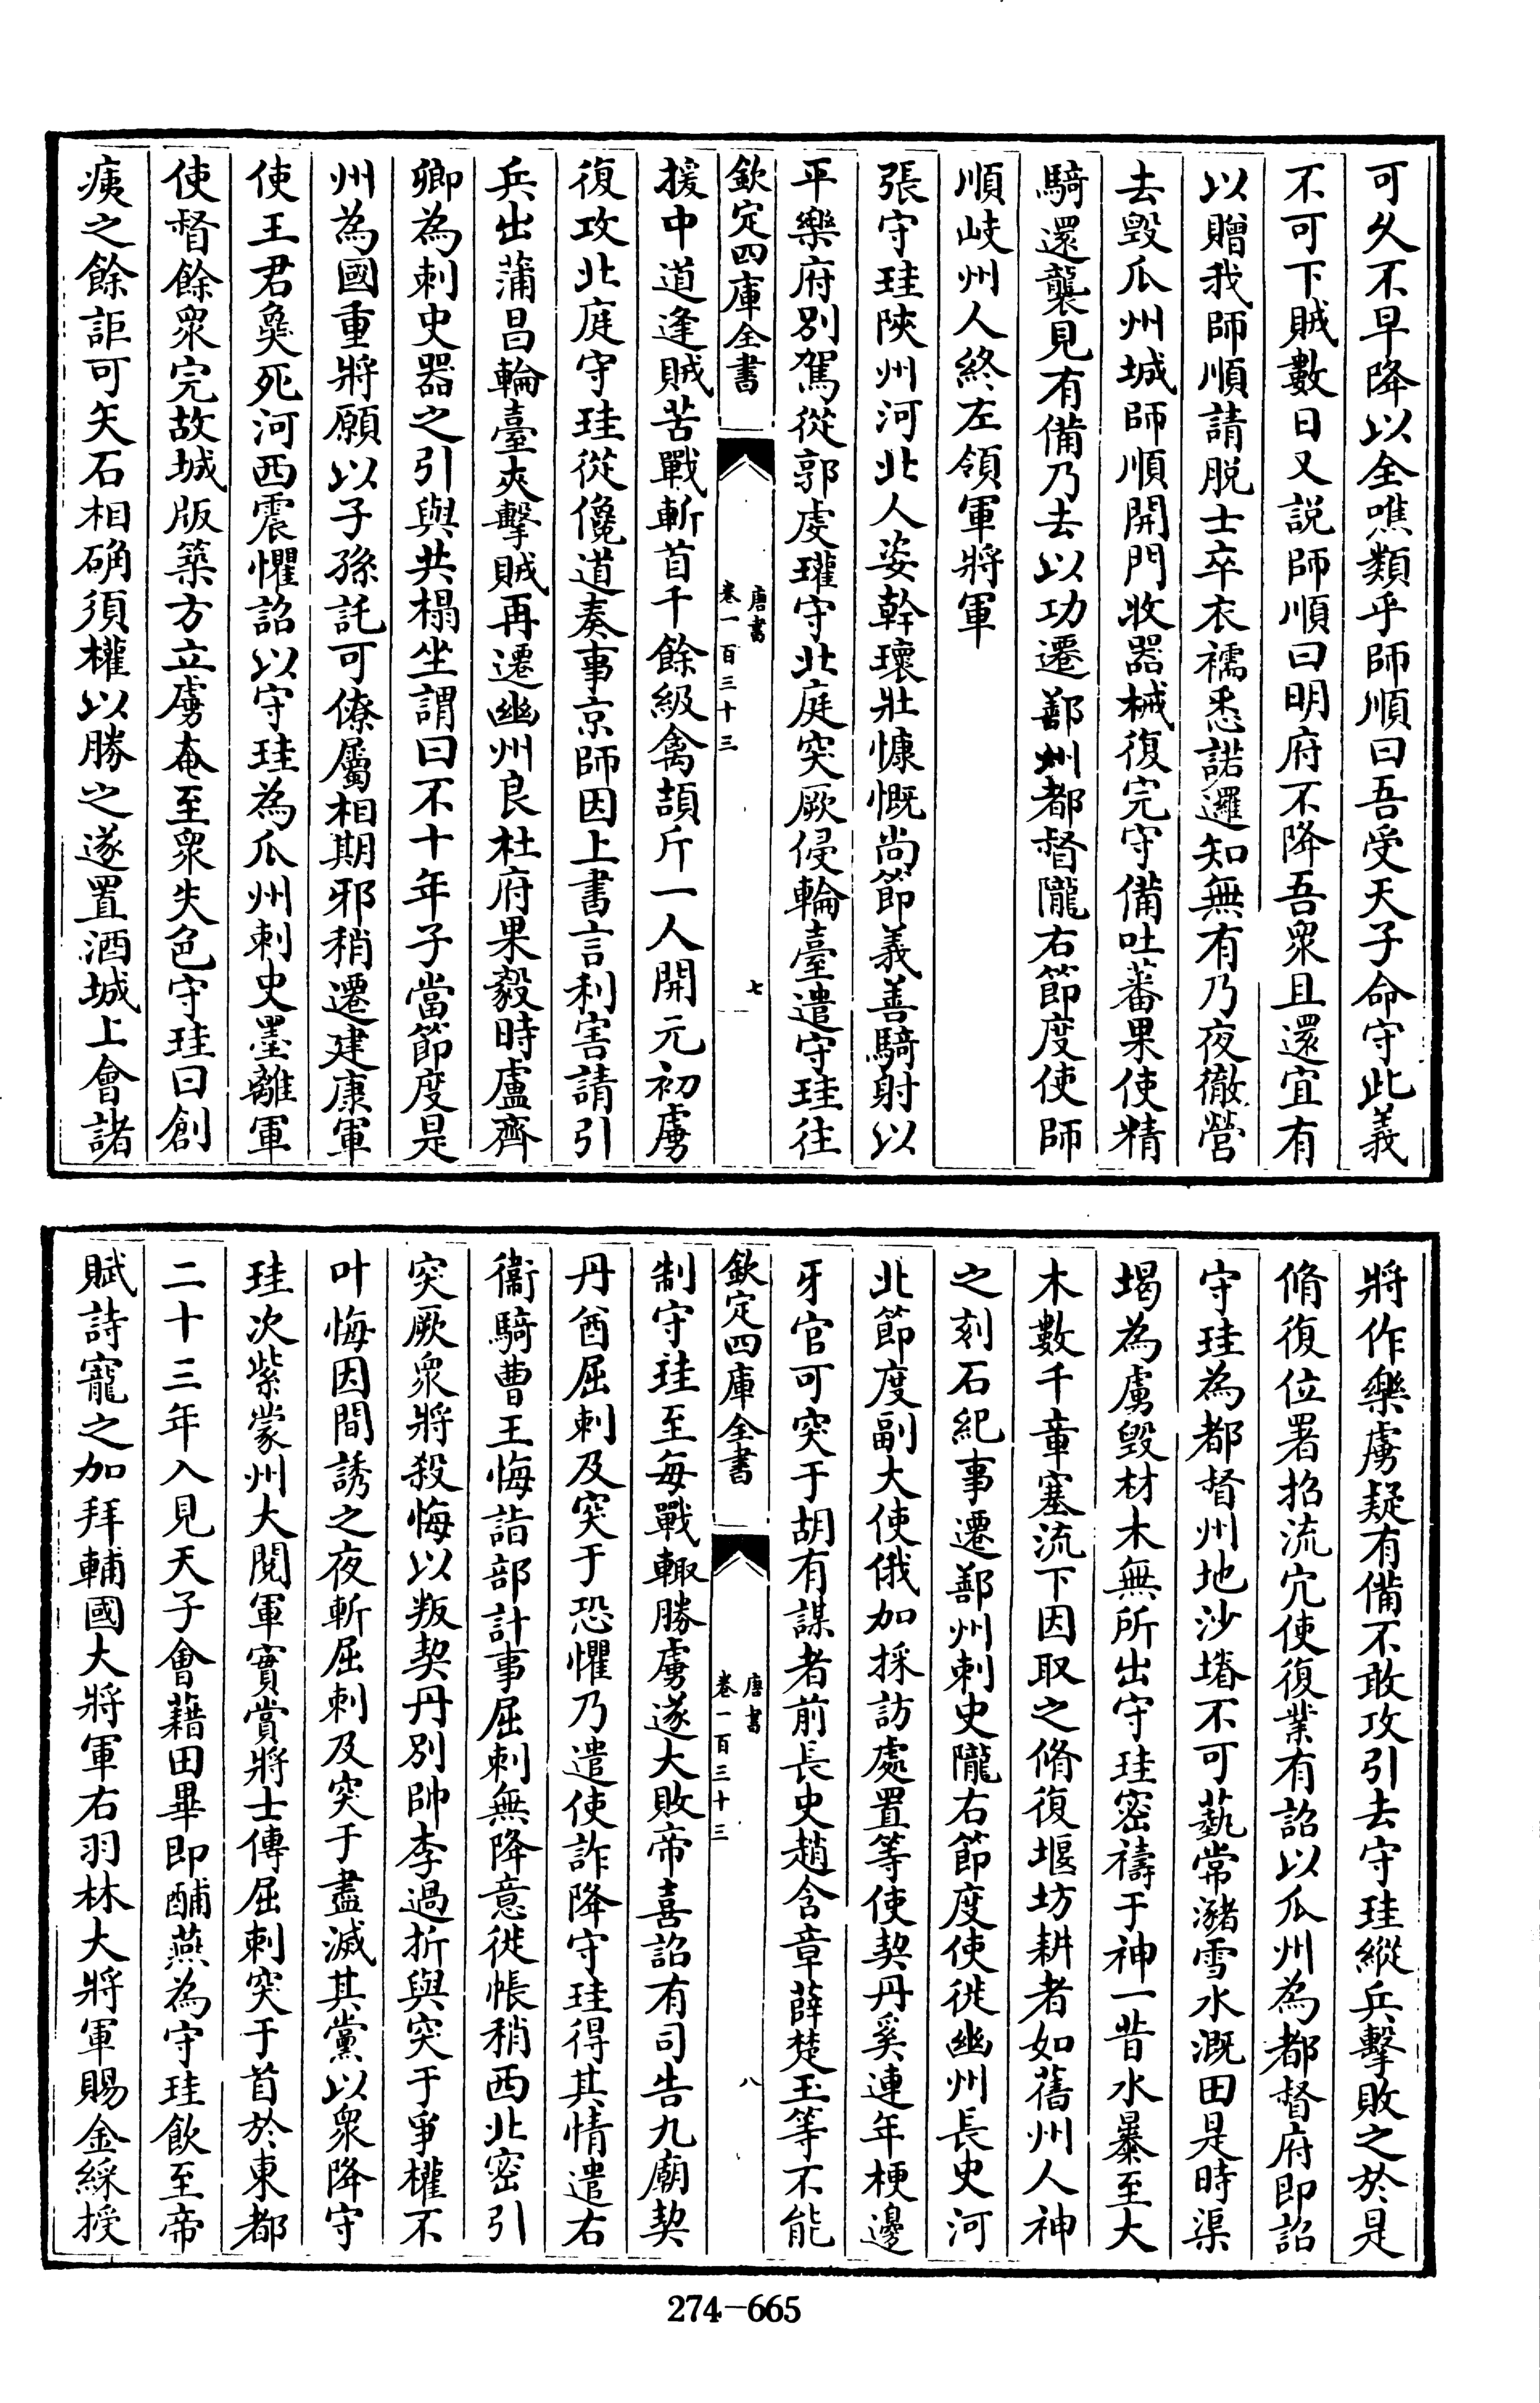 可久不早降以全噍類乎師順曰吾受天子命守此義
不可下賊數日又説師順曰明府不降吾衆且還宜有
以贈我師順請脱士卒衣襦悉諾邏知無有乃夜徹營
去毁瓜州城師順開門收器械復完守備吐蕃果使精
騎還襲見有備乃去以功遷鄯州都督隴右節度使師
順岐州人終左領軍將軍
張守珪陜州河北人姿幹瓌壯慷慨尚節義善騎射以
平樂府别駕從郭虔瓘守北庭突厥侵輪臺遣守珪往
欽定四庫全書
唐書
卷一百三十三
七
援中道逢賊苦戰斬首千餘級禽頡斤一人開元初虜
復攻北庭守珪從儳道奏事京師因上書言利害請引
兵出蒲昌輪臺夾擊賊再遷幽州良杜府果毅時盧齊
卿為刺史器之引與共榻坐謂曰不十年子當節度是
州為國重將願以子孫託可僚屬相期邪稍遷建康軍
使王君㚟死河西震懼詔以守珪為瓜州刺史墨離軍
使督餘衆完故城版築方立虜奄至衆失色守珪曰創
痍之餘詎可矢石相确須權以勝之遂置酒城上會諸
將作樂虜疑有備不敢攻引去守珪縱兵擊敗之於是
脩復位署招流冗使復業有詔以瓜州為都督府即詔
守珪為都督州地沙塉不可蓺常瀦雪水溉田是時渠
堨為虜毁材木無所出守珪密禱于神一昔水暴至大
木數千章塞流下因取之脩復堰坊耕者如舊州人神
之刻石紀事遷鄯州刺史隴右節度使徙幽州長史河
北節度副大使俄加採訪處置等使契丹奚連年梗邊
牙官可突于胡有謀者前長史趙含章薛楚玉等不能
欽定四庫全書
唐書
卷一百三十三
八
制守珪至每戰輙勝虜遂大敗帝喜詔有司告九廟契
丹酋屈刺及突于恐懼乃遣使詐降守珪得其情遣右
衞騎曹王悔詣部計事屈刺無降意徙帳稍西北密引
突厥衆將殺悔以叛契丹别帥李過折與突于爭權不
叶悔因間誘之夜斬屈刺及突于盡滅其黨以衆降守
珪次紫蒙州大閲軍實賞將士傳屈刺突于首於東都
二十三年入見天子會藉田畢即酺燕為守珪飲至帝
賦詩寵之加拜輔國大將軍右羽林大將軍賜金綵授
274-665